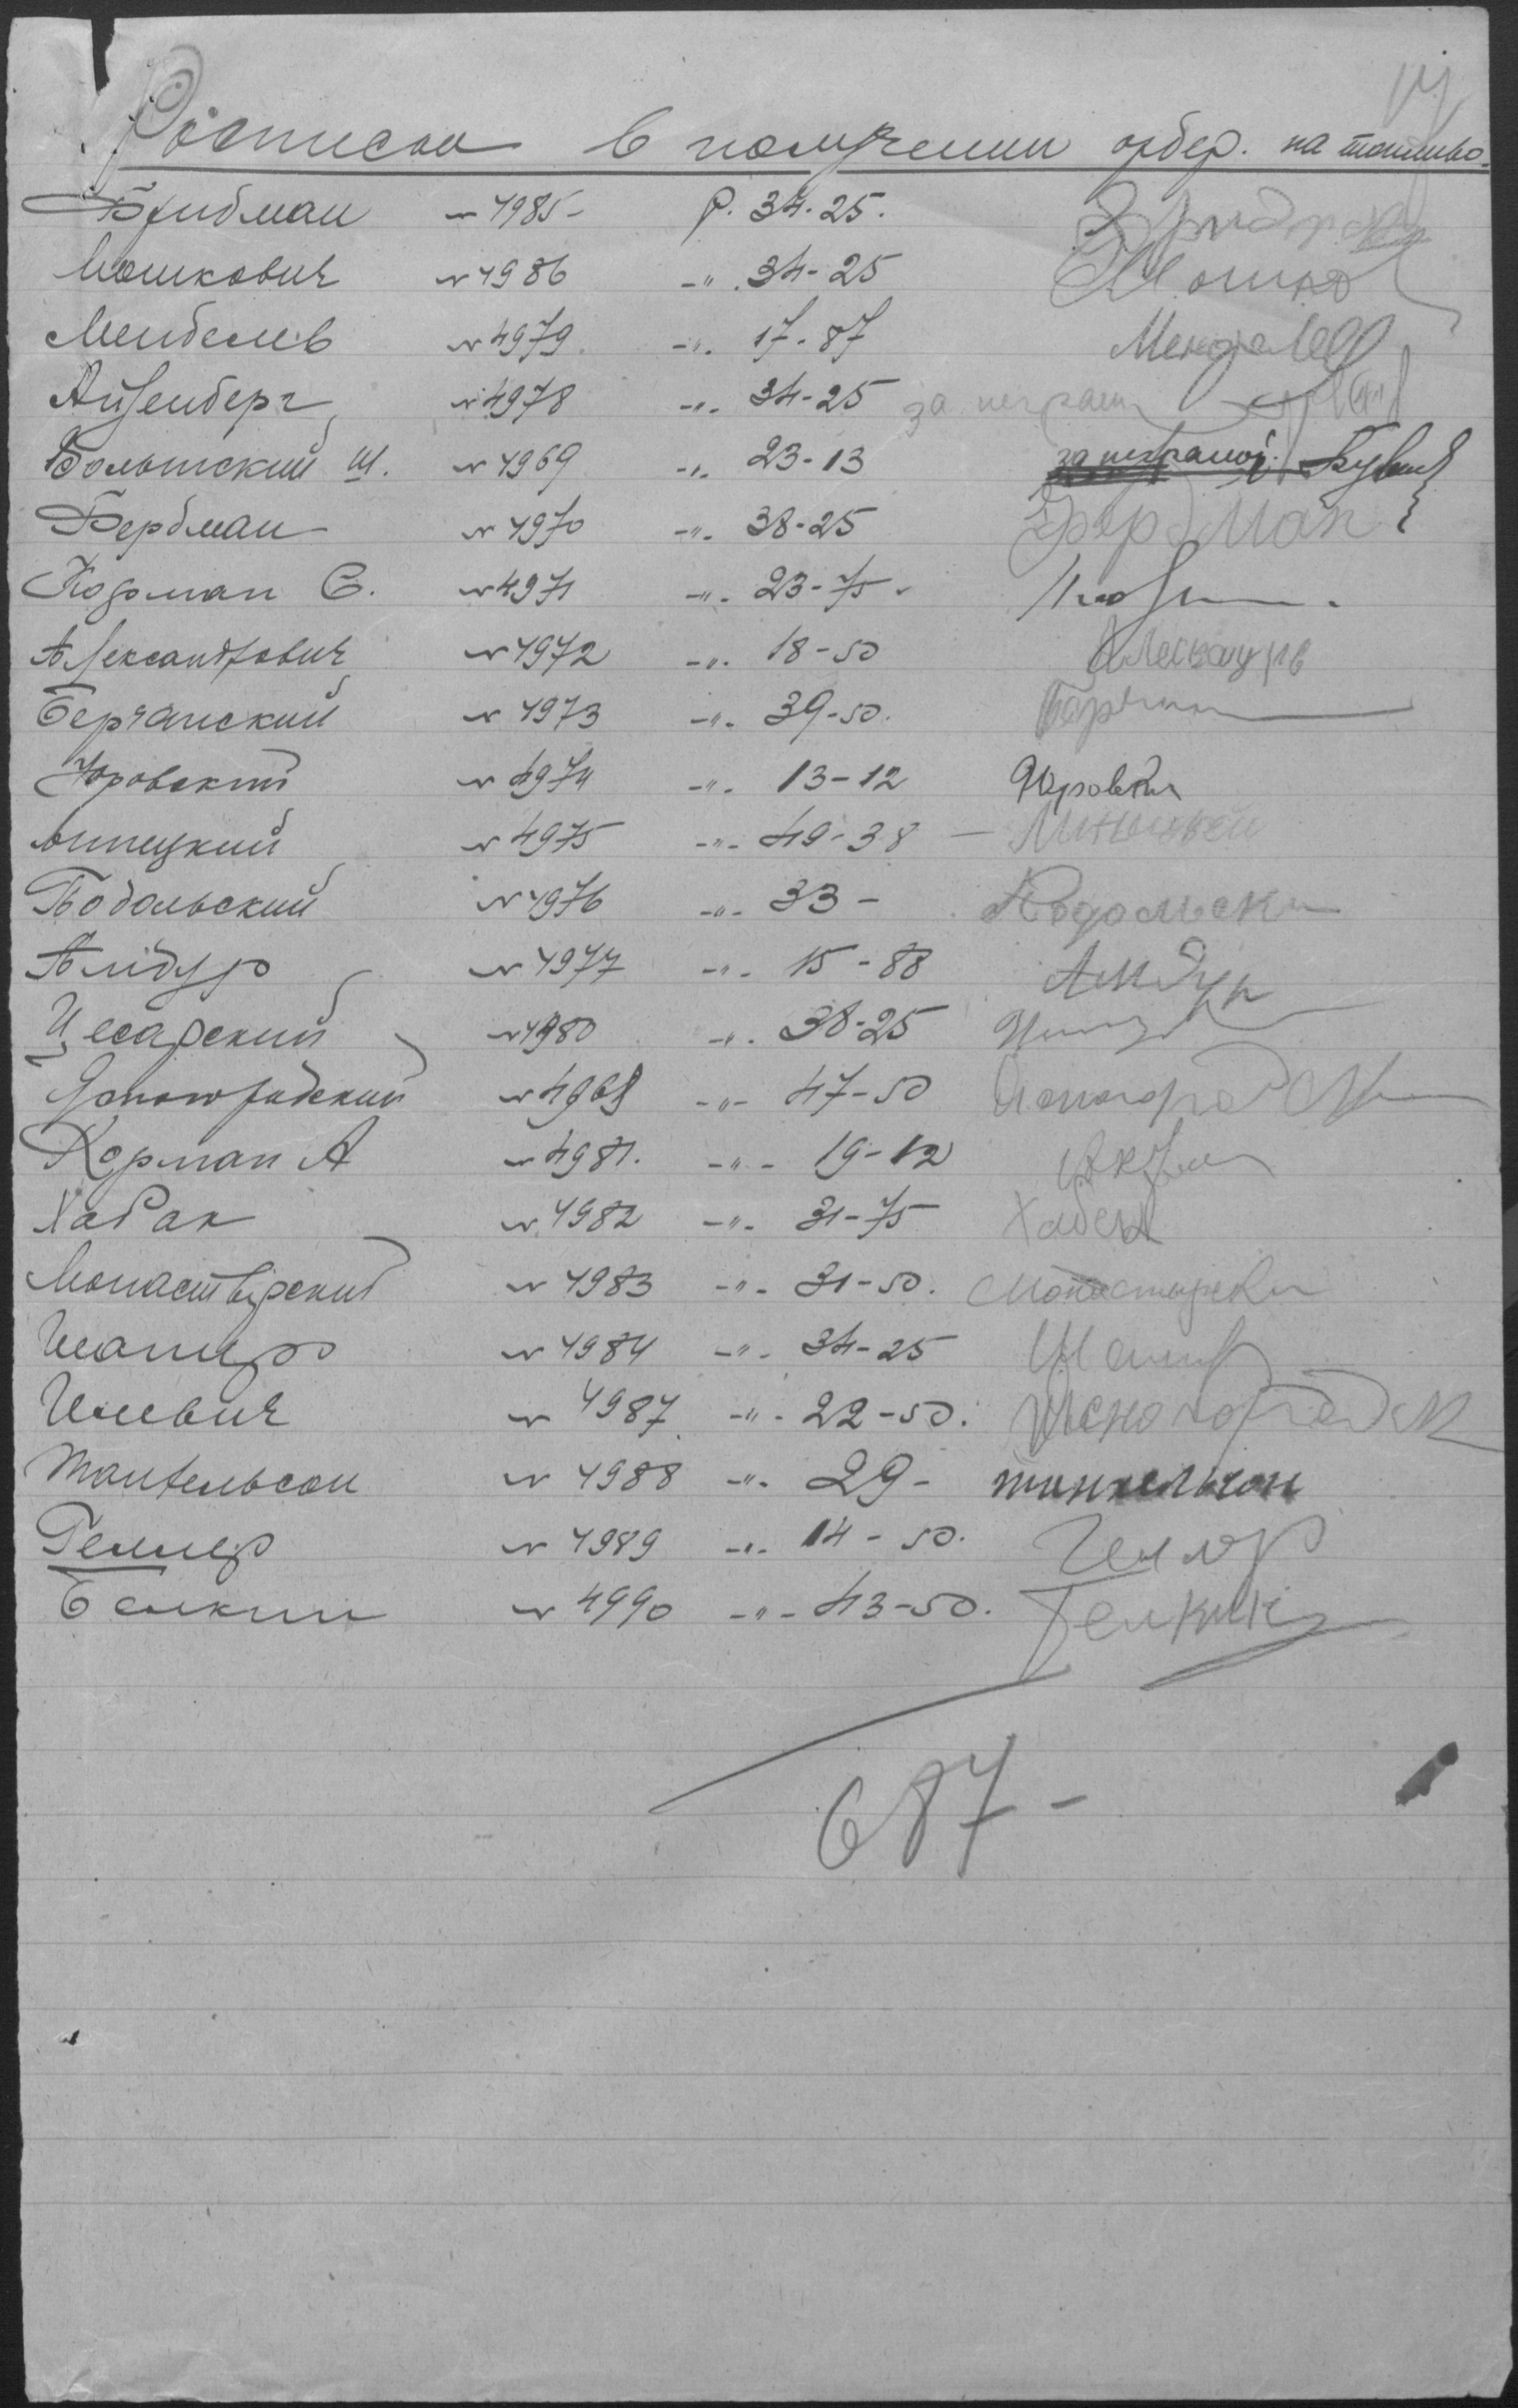 Росписки в получении ордер. на топливо.
Фридман № 4985 - р. 34-25.
Мошкович № 4986 -"- 34-25 Мошко
Менделев № 4979 -"- 17-87 Менделев
Айзенберг № 4978 -"- 34-25 за неграм
Волынский Ш. № 4969 -"- 23-13 за неграмот.
Фердман № 4970 -"- 38-25 Фердман
Корман С. № 4971 -"- 23-75
Александрович № 4972 -"- 18-50
Берчанский № 4973 -"- 39-50.
Юровский № 4974 -"- 13-12 Юровский
Липецкий № 4975 -"- 49-38 -
Подольский № 4976 -"- 33- Подольски
Амдур № 4977 -"- 15-88 Амдур
Цесарский № 4980 -"- 38-25
Ясногродский № 4968 -"- 47-50
Корман А № 4981. -"- 19-12
Хабак № 4982 -"- 31-75
Монастырский № 4983 -"- 31-50. Монастырски
Шапиро № 4984 -"- 34-25 Шапир
Илевич № 4987 -"- 22-50.
Тантельсон № 4988 -"- 29-
Геллер № 4989 -"- 14-50. Геллер
Белкин № 4990 -"- 43-50. Белкин
687-